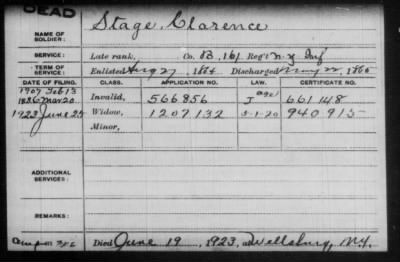 DEAD
NAME OF SOLDIER: Stage, Clarence
SERVICE: Late rank, Co. B, 161 Reg't N.Y. Inf
TERM OF SERVICE: Enlisted Aug 27, 1864 Discharged 1865
DATE OF FILING. CLASS. APPLICATION NO. LAW. CERTIFICATE NO.
1907 Feb 13
1886 Mar 20 Invalid, 566856 J age 661148
1923 June 25 Widow, 1207132 5-1-20 940915
Minor,
ADDITIONAL SERVICES:
REMARKS:
Died June 19, 1923, at Wellsburg, N.Y.